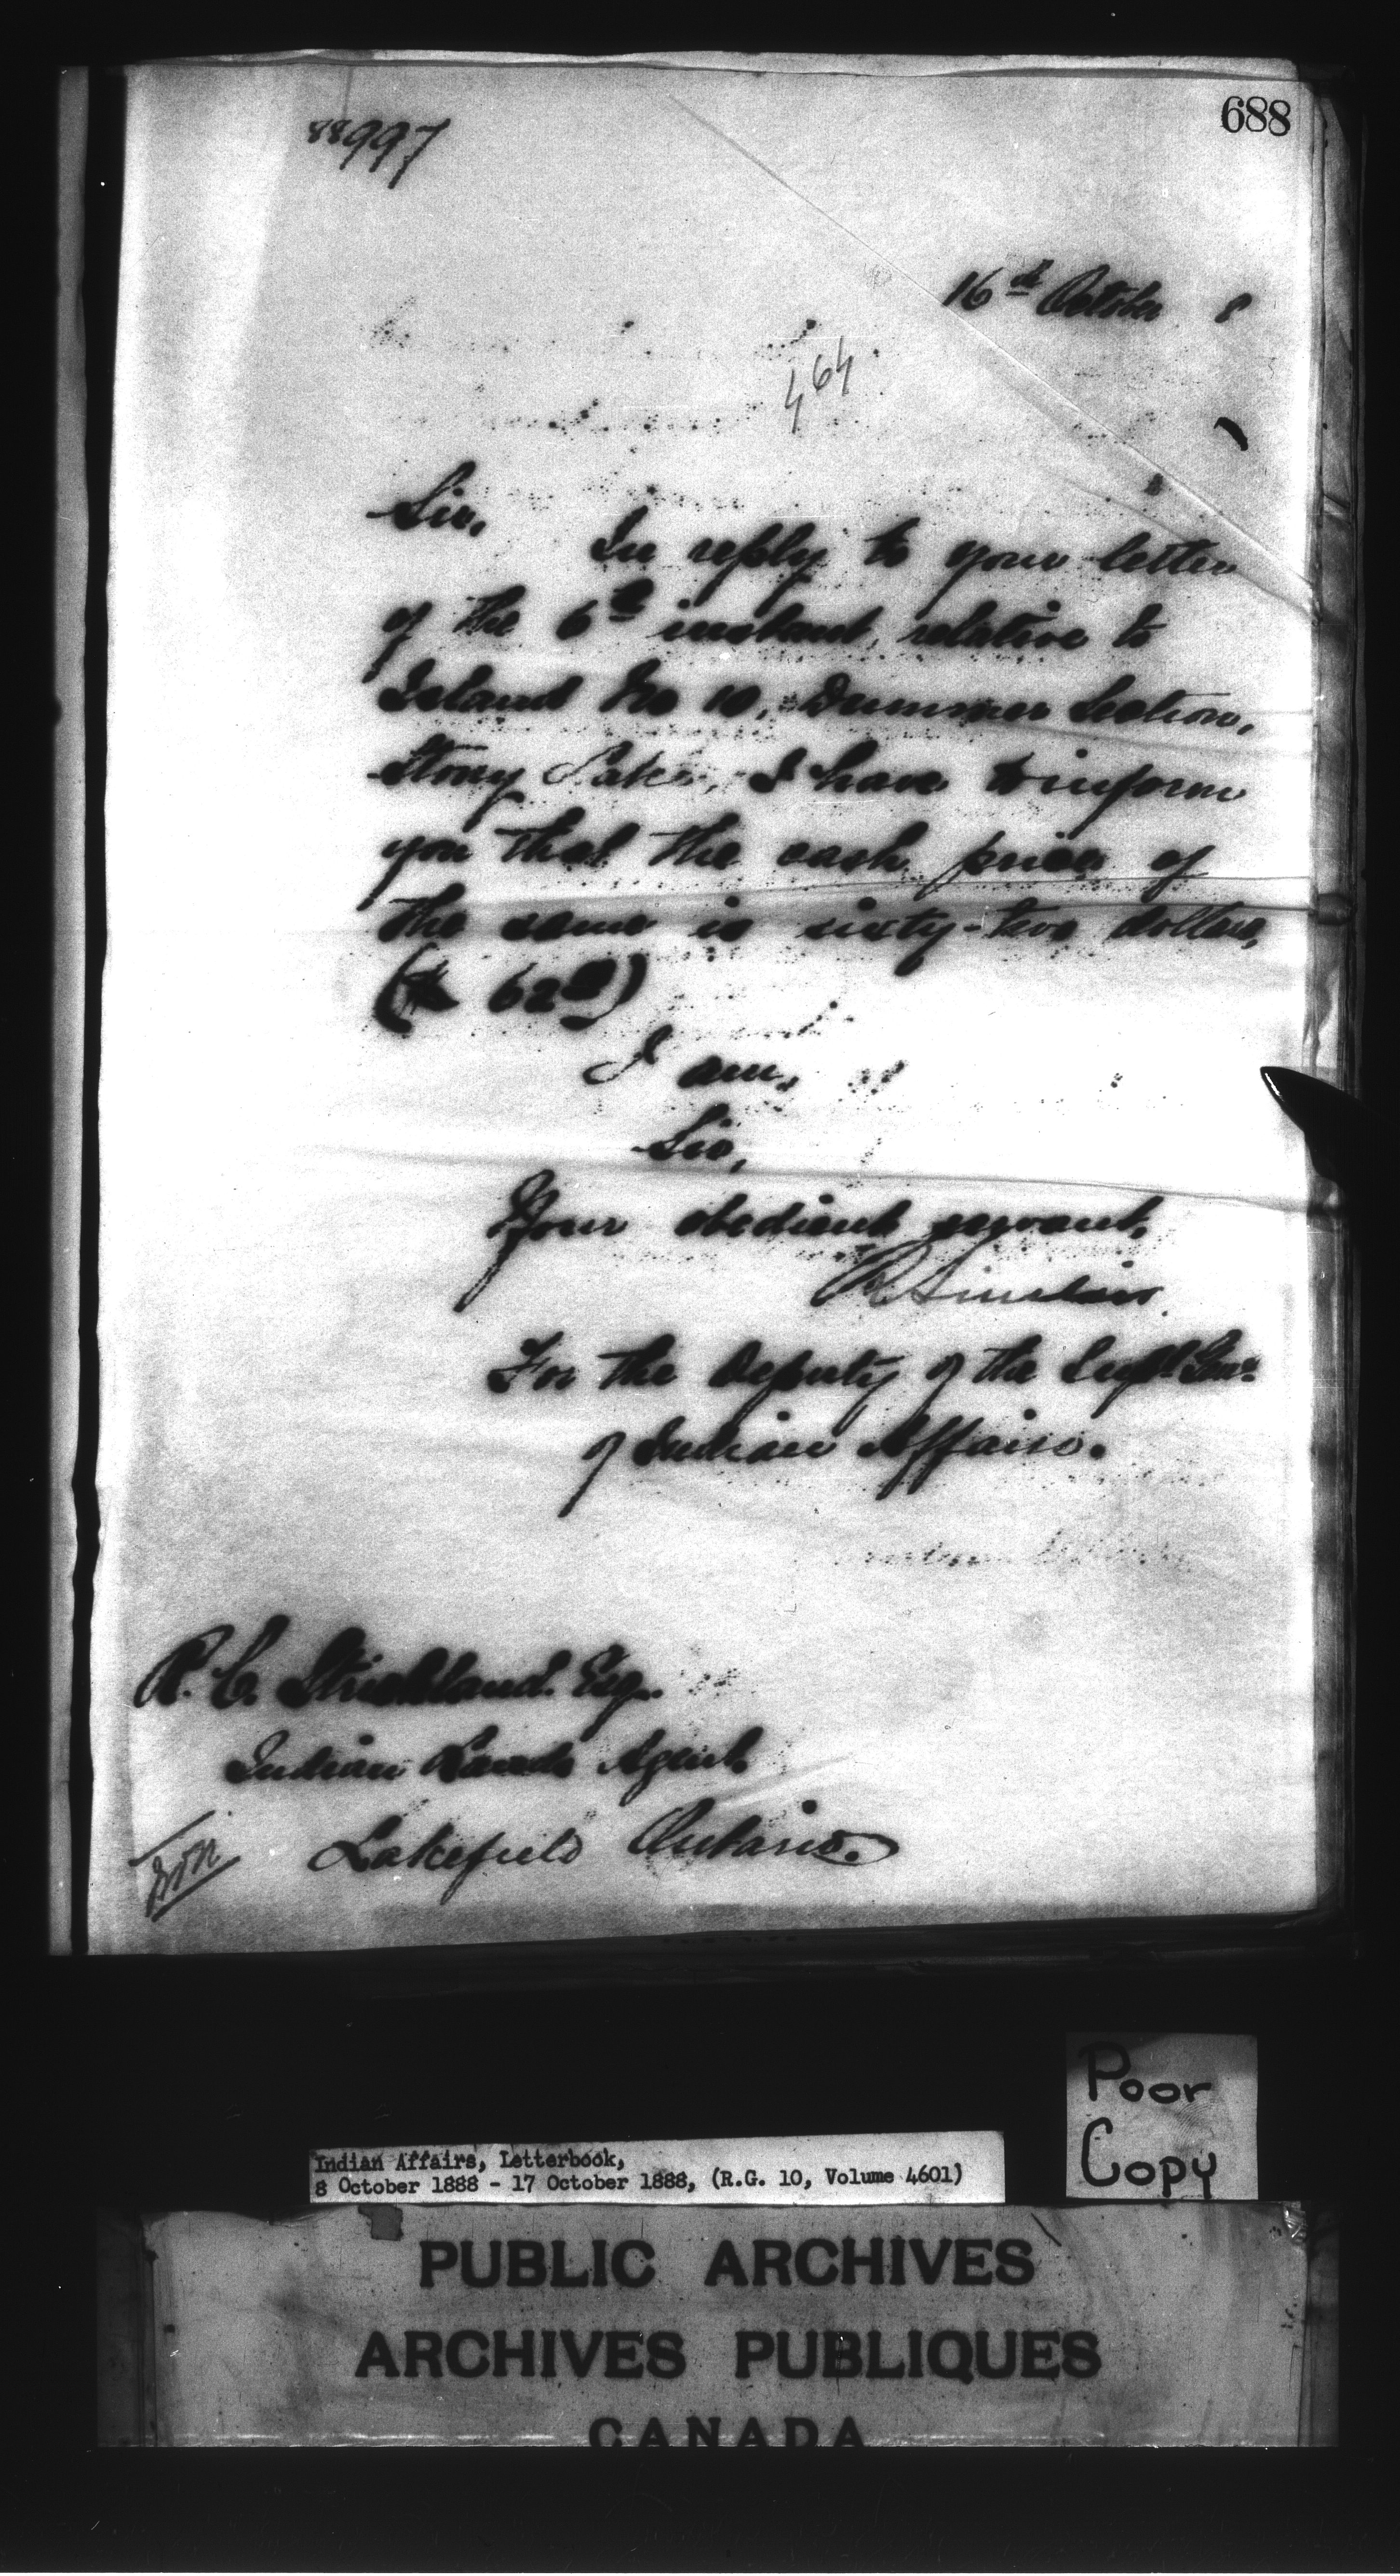 688
88997
16th October 8
464
Sir,
In reply to your letter
of the 6th instant, relative to
Island No 10, Dummer Section,
Stony Lake, I have to inform
you that the cash price of
the same is sixty-two dollars,
($ 62.00)
I am,
Sir,
Your obedient servant,
R Sinclair
For the Deputy of the Supt Genl
of Indian Affairs.
R. C. Strickland. Esq.
Indian Lands Agent
Lakefield Ontario.
Poor
Copy
Indian Affairs, Letterbook,
8 October 1888 - 17 October 1888, (R.G. 10, Volume 4601)
PUBLIC ARCHIVES
ARCHIVES PUBLIQUES
CANADA